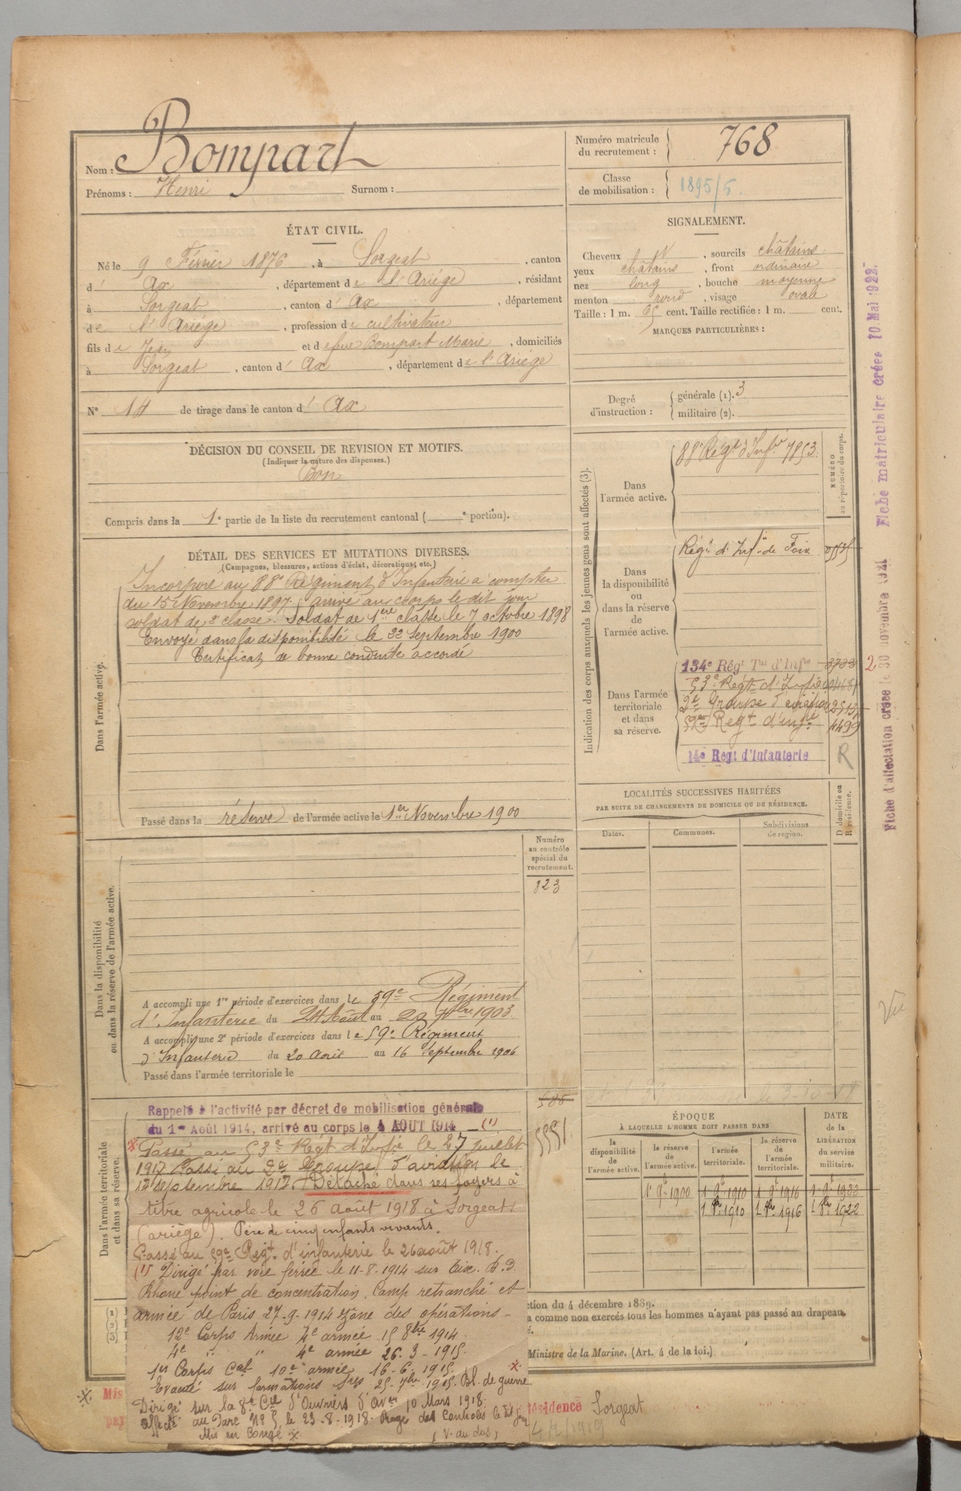 Nom : Bompart
Prénoms : Henri Surnom :
Numéro matricule du recrutement : 768
Classe de mobilisation : 1895/6
ÉTAT CIVIL.
Né le 9 Février 1876, à Sorgeat, canton
d' Ax, département de l'Ariège, résidant
à Sorgeat, canton d' Ax, département
de l'Ariège, profession de cultivateur
fils de Jean et de Bompart Marie, domiciliés
à Sorgeat, canton d' Ax, département de l'Ariège
N° 14 de tirage dans le canton d' Ax
SIGNALEMENT.
Cheveux, sourcils châtains
yeux châtains, front ordinaire
nez long, bouche moyenne
menton rond, visage oval
Taille : 1 m. 65 cent. Taille rectifiée : 1 m. cent.
MARQUES PARTICULIÈRES :
Degré d'instruction : générale (1). 3
militaire (2).
DÉCISION DU CONSEIL DE REVISION ET MOTIFS.
(Indiquer la nature des dispenses.)
Bon
Compris dans la 1e partie de la liste du recrutement cantonal ( e portion).
DÉTAIL DES SERVICES ET MUTATIONS DIVERSES.
(Campagnes, blessures, actions d'éclat, décorations, etc.)
Dans l'armée active.
Incorporé au 88e Régiment d'Infanterie à compter
du 15 Novembre 1897, arrivé au corps le dit jour
soldat de 2e classe. Soldat de 1ère classe le 7 octobre 1898
Envoyé dans la disponibilité le 22 Septembre 1900
Certificat de bonne conduite accordé
Passé dans la réserve de l'armée active le 1er Novembre 1900
Indication des corps auxquels les jeunes gens sont affectés (3).
NUMÉRO au répertoire du corps.
Dans l'armée active.
88e Régt d'Infrie 7853
Dans la disponibilité ou dans la réserve de l'armée active.
Régt d'Inf. de Foix
Dans l'armée territoriale et dans sa réserve.
134e Régt Tal d'Infie
53e Régt d'Infie
2e Groupe d'aviation
59e Régt d'Infie 4499
14e Régt d'Infanterie
R
LOCALITÉS SUCCESSIVES HABITÉES
PAR SUITE DE CHANGEMENTS DE DOMICILE OU DE RÉSIDENCE.
Dates. Communes. Subdivisions de région. D domicile ou R résidence.
Numéro au contrôle spécial du recrutement.
823
Dans la disponibilité ou dans la réserve de l'armée active.
A accompli une 1re période d'exercices dans le 59e Régiment
d'Infanterie du 24 Août au 20 7bre 1903
A accompli une 2e période d'exercices dans le 59e Régiment
d'Infanterie du 20 Août au 16 Septembre 1906
Passé dans l'armée territoriale le
Dans l'armée territoriale et dans sa réserve.
Rappelé à l'activité par décret de mobilisation générale
du 1er Août 1914, arrivé au corps le 4 AOUT 1914 (1)
Passé au 53e Régt d'Infie le 27 Juillet
1917 Passé au 2e Groupe d'aviation le
12 septembre 1917. Détaché dans ses foyers à
titre agricole le 26 août 1918 à Sorgeat
(ariège). Père de cinq enfants vivants.
Passé au 59e Regt d'infanterie le 26 août 1918.
(1) Dirigé par voie ferrée le 11-8-1914 sur Aix. B.D
Rhône point de concentration. Camp retranché et
armée de Paris 27.9.1914 zône des opérations -
12e Corps Armée 4e armée 15 8bre 1914
4e " " 4e armée 26.3-1915
1er Corps Cal 10e armée 16-6-1915
Evacué sur formations 25-7bre 1915 Bl. de guerre
Dirigé sur la 8e Cie d'Ouvriers d'Avon 10 Mars 1918
affecté au Parc N° 5 le 23-8-1918.
Mis en Congé
(V. au dos)
ÉPOQUE
À LAQUELLE L'HOMME DOIT PASSER DANS
la disponibilité de l'armée active. la réserve de l'armée active. l'armée territoriale. la réserve de l'armée territoriale.
DATE de la LIBÉRATION du service militaire.
1 9bre 1900 1 9bre 1910 1 9bre 1916 1 9bre 1922
1 8bre 1910 1 8bre 1916 1 8bre 1922
ction du 4 décembre 1889.
a comme non exercés tous les hommes n'ayant pas passé au drapeau.
Ministre de la Marine. (Art. 4 de la loi.)
Mis
résidence Sorgeat
Fiche d'affectation créée le 30 novembre 1921
Fiche matriculaire créée 10 Mai 1922.
Vu